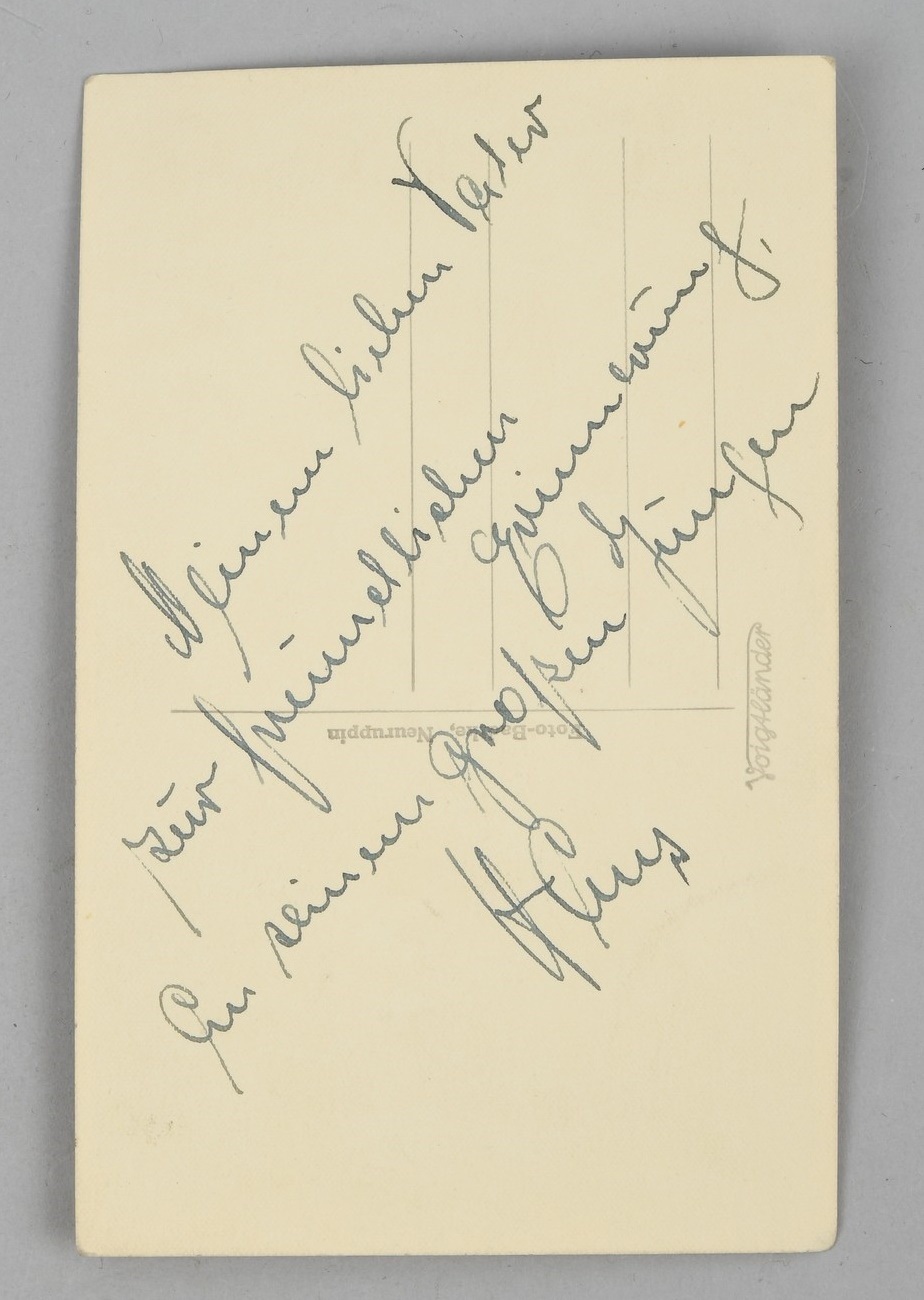 Meinem lieben Vater
zur freundlichen Erinnerung
An seinen großen Jungen
Foto-Ba ke, Neuruppin
Voigtländer